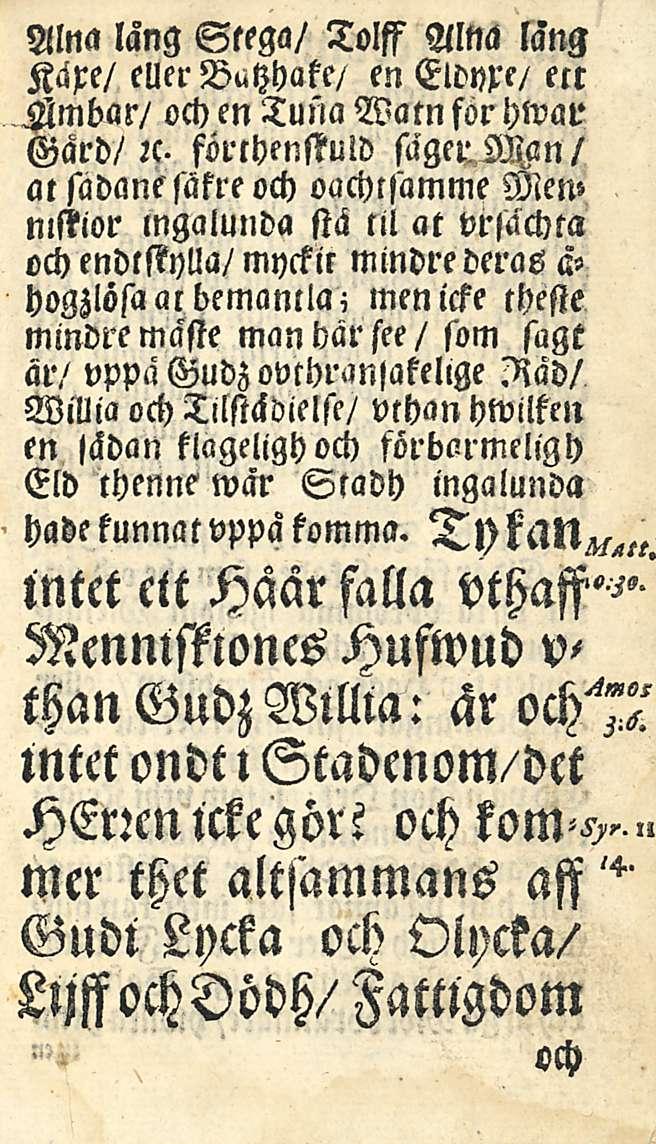 Alna lång Stega/ Tolff Alna lång
Käxe/ eller Båtzhake/ en Eldyxe/ ett
Ämbar/ och en Tuña Watn för hwar
Gård/ ꝛc. förthenskuld säger Man/
at sådane säkre och oachtsamme Men⸗
niskior ingalunda stå til at vrsächta
och endtskylla/ myckit mindre deras å⸗
hogzlösa at bemantla; men icke theste
mindre måste man här see/ som sagt
är/ vppå Gudz ovthransakelige Råd/
Willia och Tilstädielse/ vthan hwilken
en sådan klageligh och förbarmeligh
Eld thenne wår Stadh ingalunda
hade kunnat vppå komma. Ty kan Matt.
intet ett Håår falla vthaff 10:30.
Menniskiones Hufwud v⸗
than Gudz Willia: är och Amos
intet ondt i Stadenom/ det 3:6.
HErren icke gör? och kom⸗ Syr. 11
mer thet altsammans aff 14.
Gudi Lycka och Olycka/
Lijff och Dödh/ Fattigdom
och